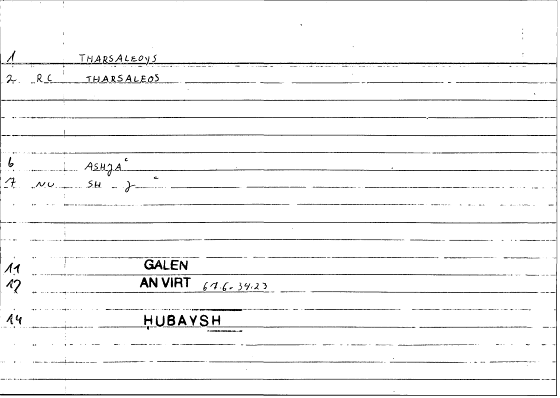 1 THARSALEOYS
2 RC THARSALEOS
6 ASHJAʿ
7 NU SH - J ʿ
11 GALEN
12 AN VIRT 67.6-34.23
14 ḤUBAYSH